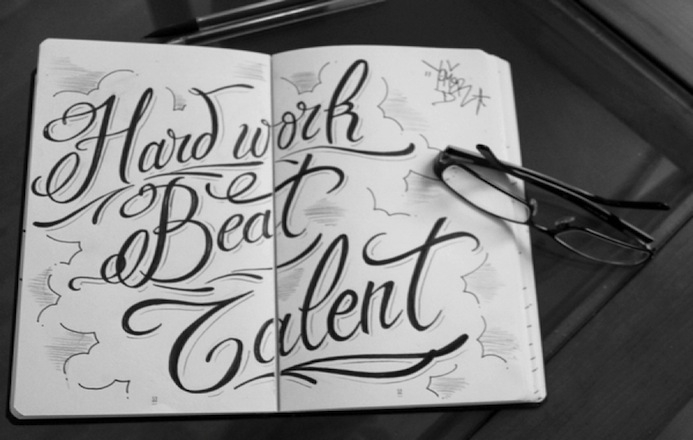 Hard work
Beat
Talent